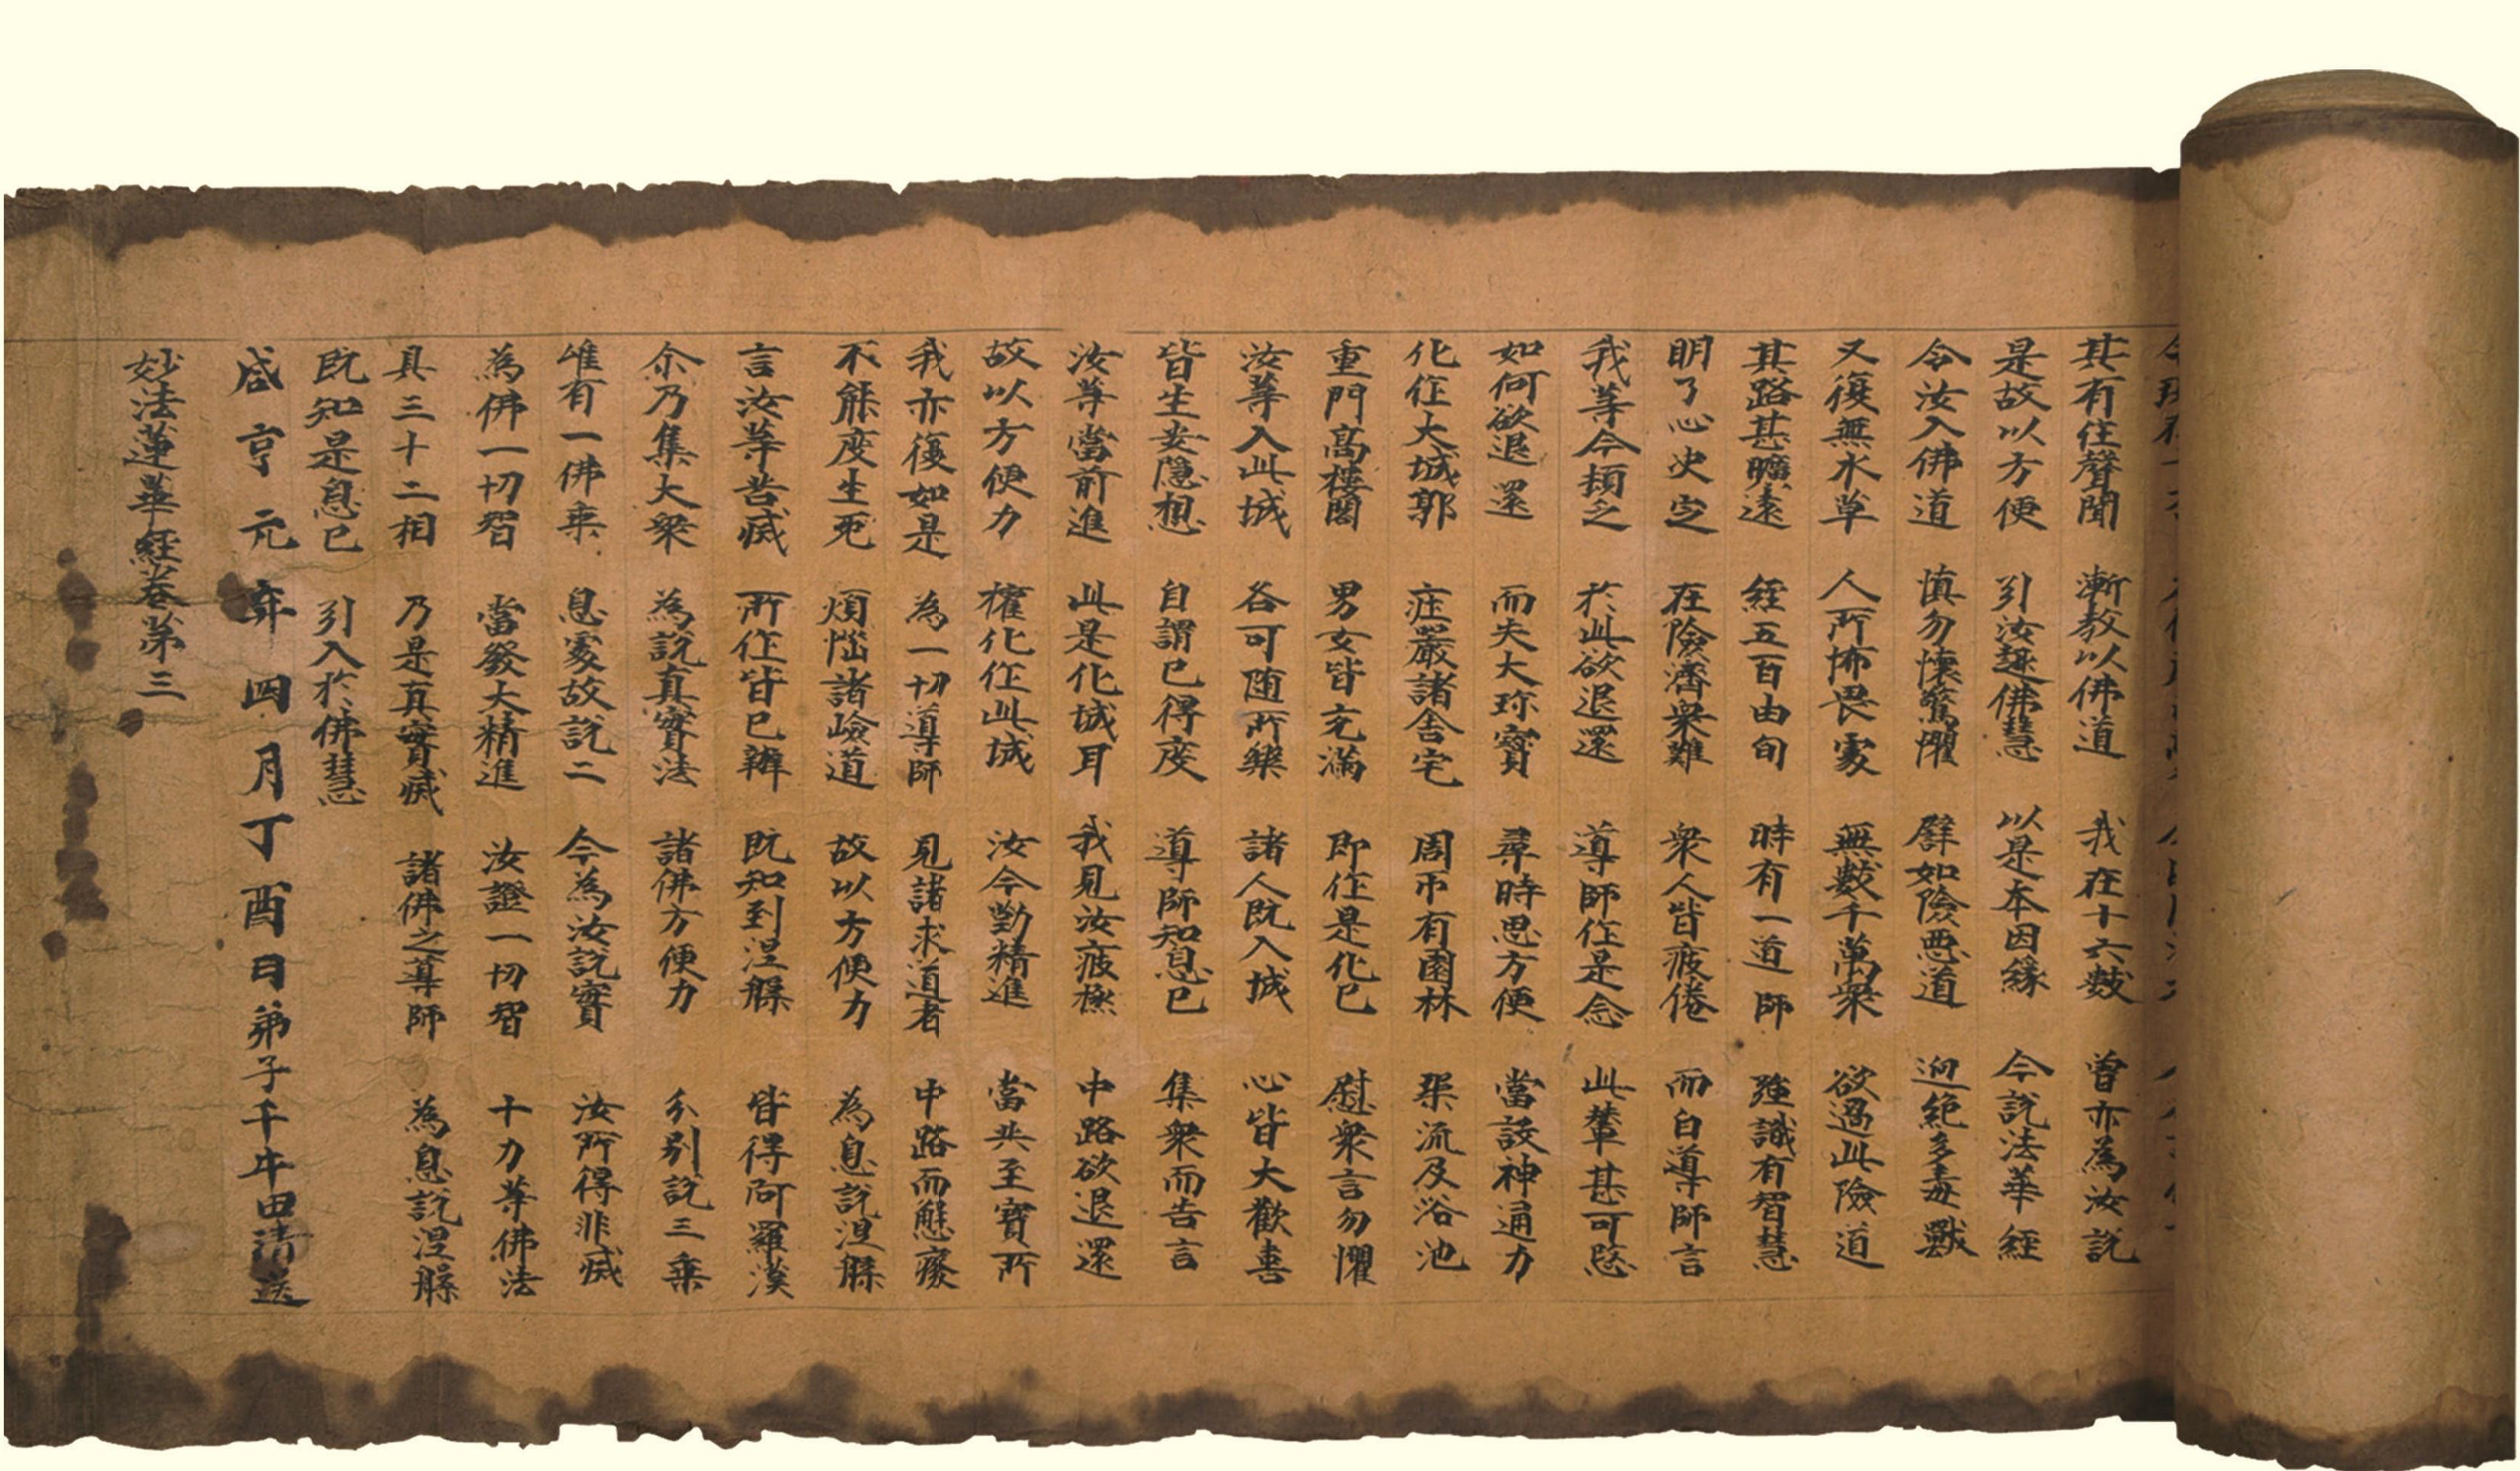 其有住聲聞 漸教以佛道 我在十六數 曾亦為汝說
是故以方便 引汝趣佛慧 以是本因緣 今說法華經
令汝入佛道 慎勿懷驚懼 譬如險惡道 迥絕多毒獸
又復無水草 人所怖畏處 無數千萬衆 欲過此險道
其路甚曠遠 經五百由旬 時有一道師 強識有智慧
明了心决定 在險濟衆難 衆人皆疲倦 而白導師言
我等今頓乏 於此欲退還 導師作是念 此輩甚可愍
如何欲退還 而失大珎寶 尋時思方便 當設神通力
化作大城郭 庄嚴諸舍宅 周帀有園林 渠流及浴池
重門高樓閣 男女皆充滿 即作是化已 慰衆言勿懼
汝等入此城 各可随所樂 諸人既入城 心皆大歡喜
皆生安隱想 自謂已得度 導師知息已 集衆而告言
汝等當前進 此是化城耳 我見汝疲極 中路欲退還
故以方便力 權化作此城 汝今勤精進 當共至寶所
我亦復如是 為一切導師 見諸求道者 中路而懈癈
不能度生死 煩惱諸嶮道 故以方便力 為息說涅槃
言汝等苦滅 所作皆已辦 既知到涅槃 皆得阿羅漢
尒乃集大衆 為說真實法 諸佛方便力 分別說三乘
唯有一佛乘 息處故說二 今為汝說實 汝所得非滅
為佛一切智 當發大精進 汝證一切智 十力等佛法
具三十二相 乃是真實滅 諸佛之導師 為息說涅槃
既知是息已 引入於佛慧
咸亨元年四月丁酉日弟子千牛田清送
妙法蓮華經卷第三